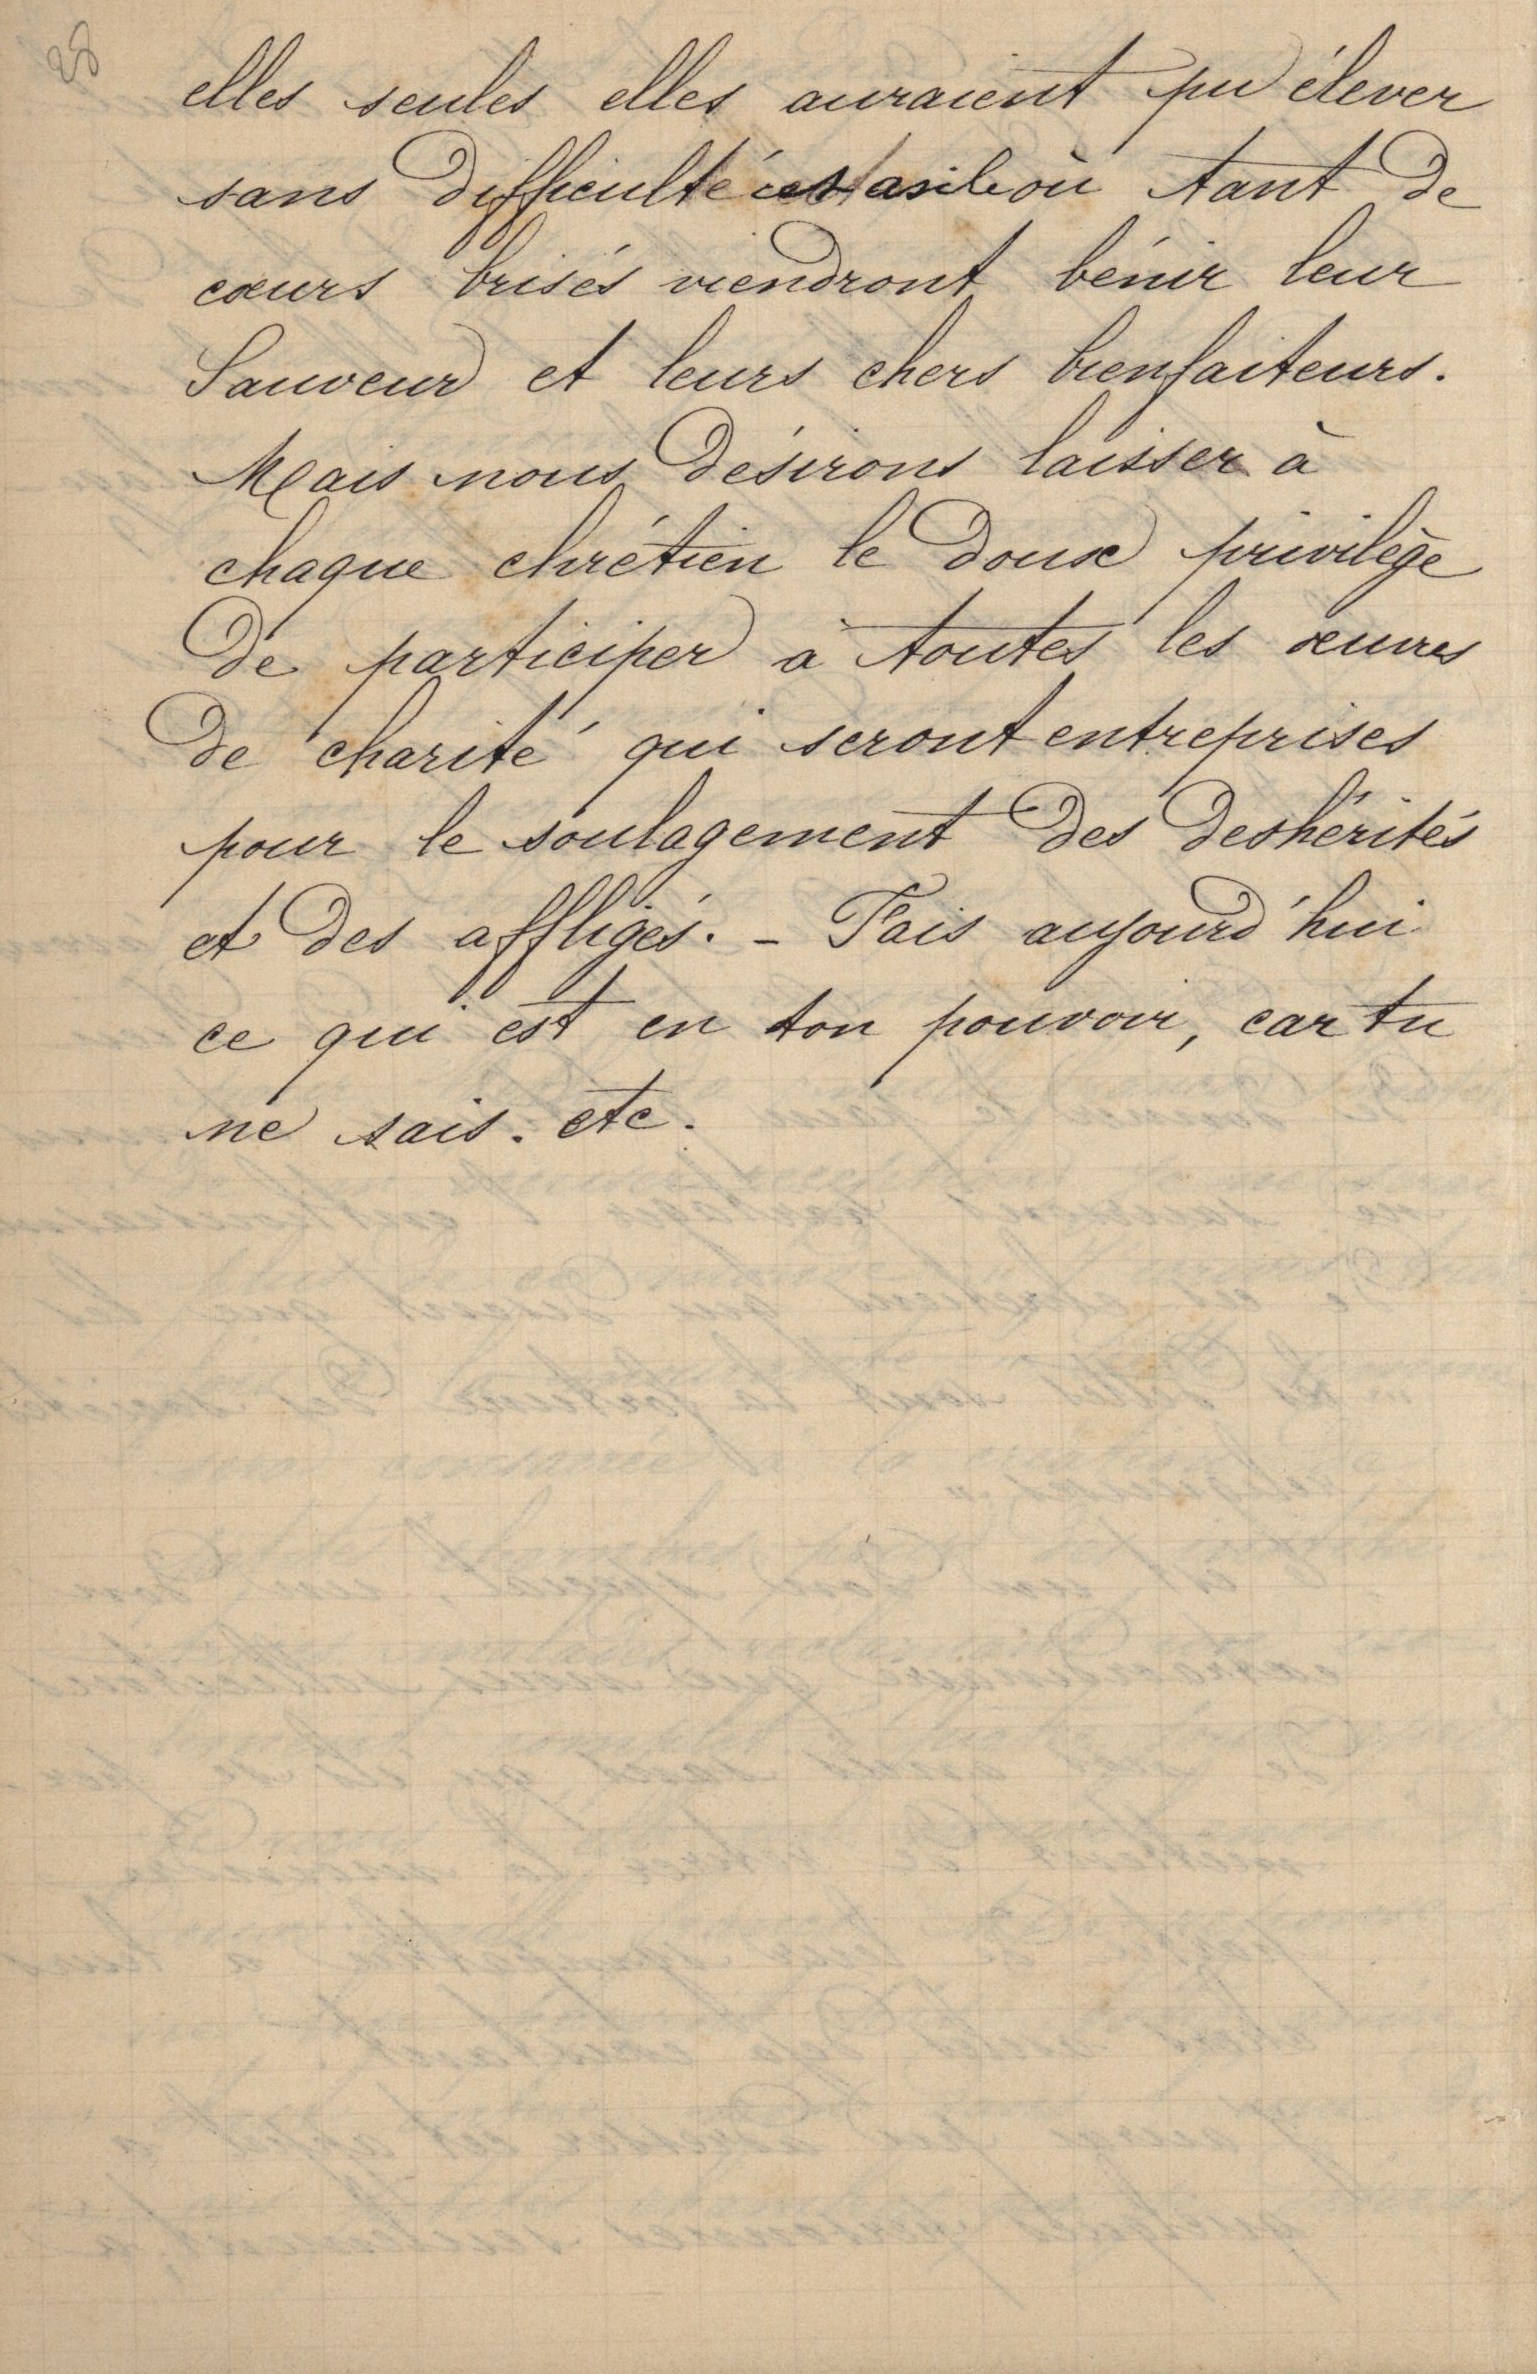 28
elles seules elles auraient pu élever
sans difficulté cet asile où tant de
cœurs brisés viendront bénir leur
Sauveur et leurs chers bienfaiteurs.
Mais nous désirons laisser à
chaque chrétien le doux privilège
de participer à toutes les œuvres
de charité qui seront entreprises
pour le soulagement des deshérités
et des affligés. – Fais aujourd'hui
ce qui est en ton pouvoir, car tu
ne sais. etc.